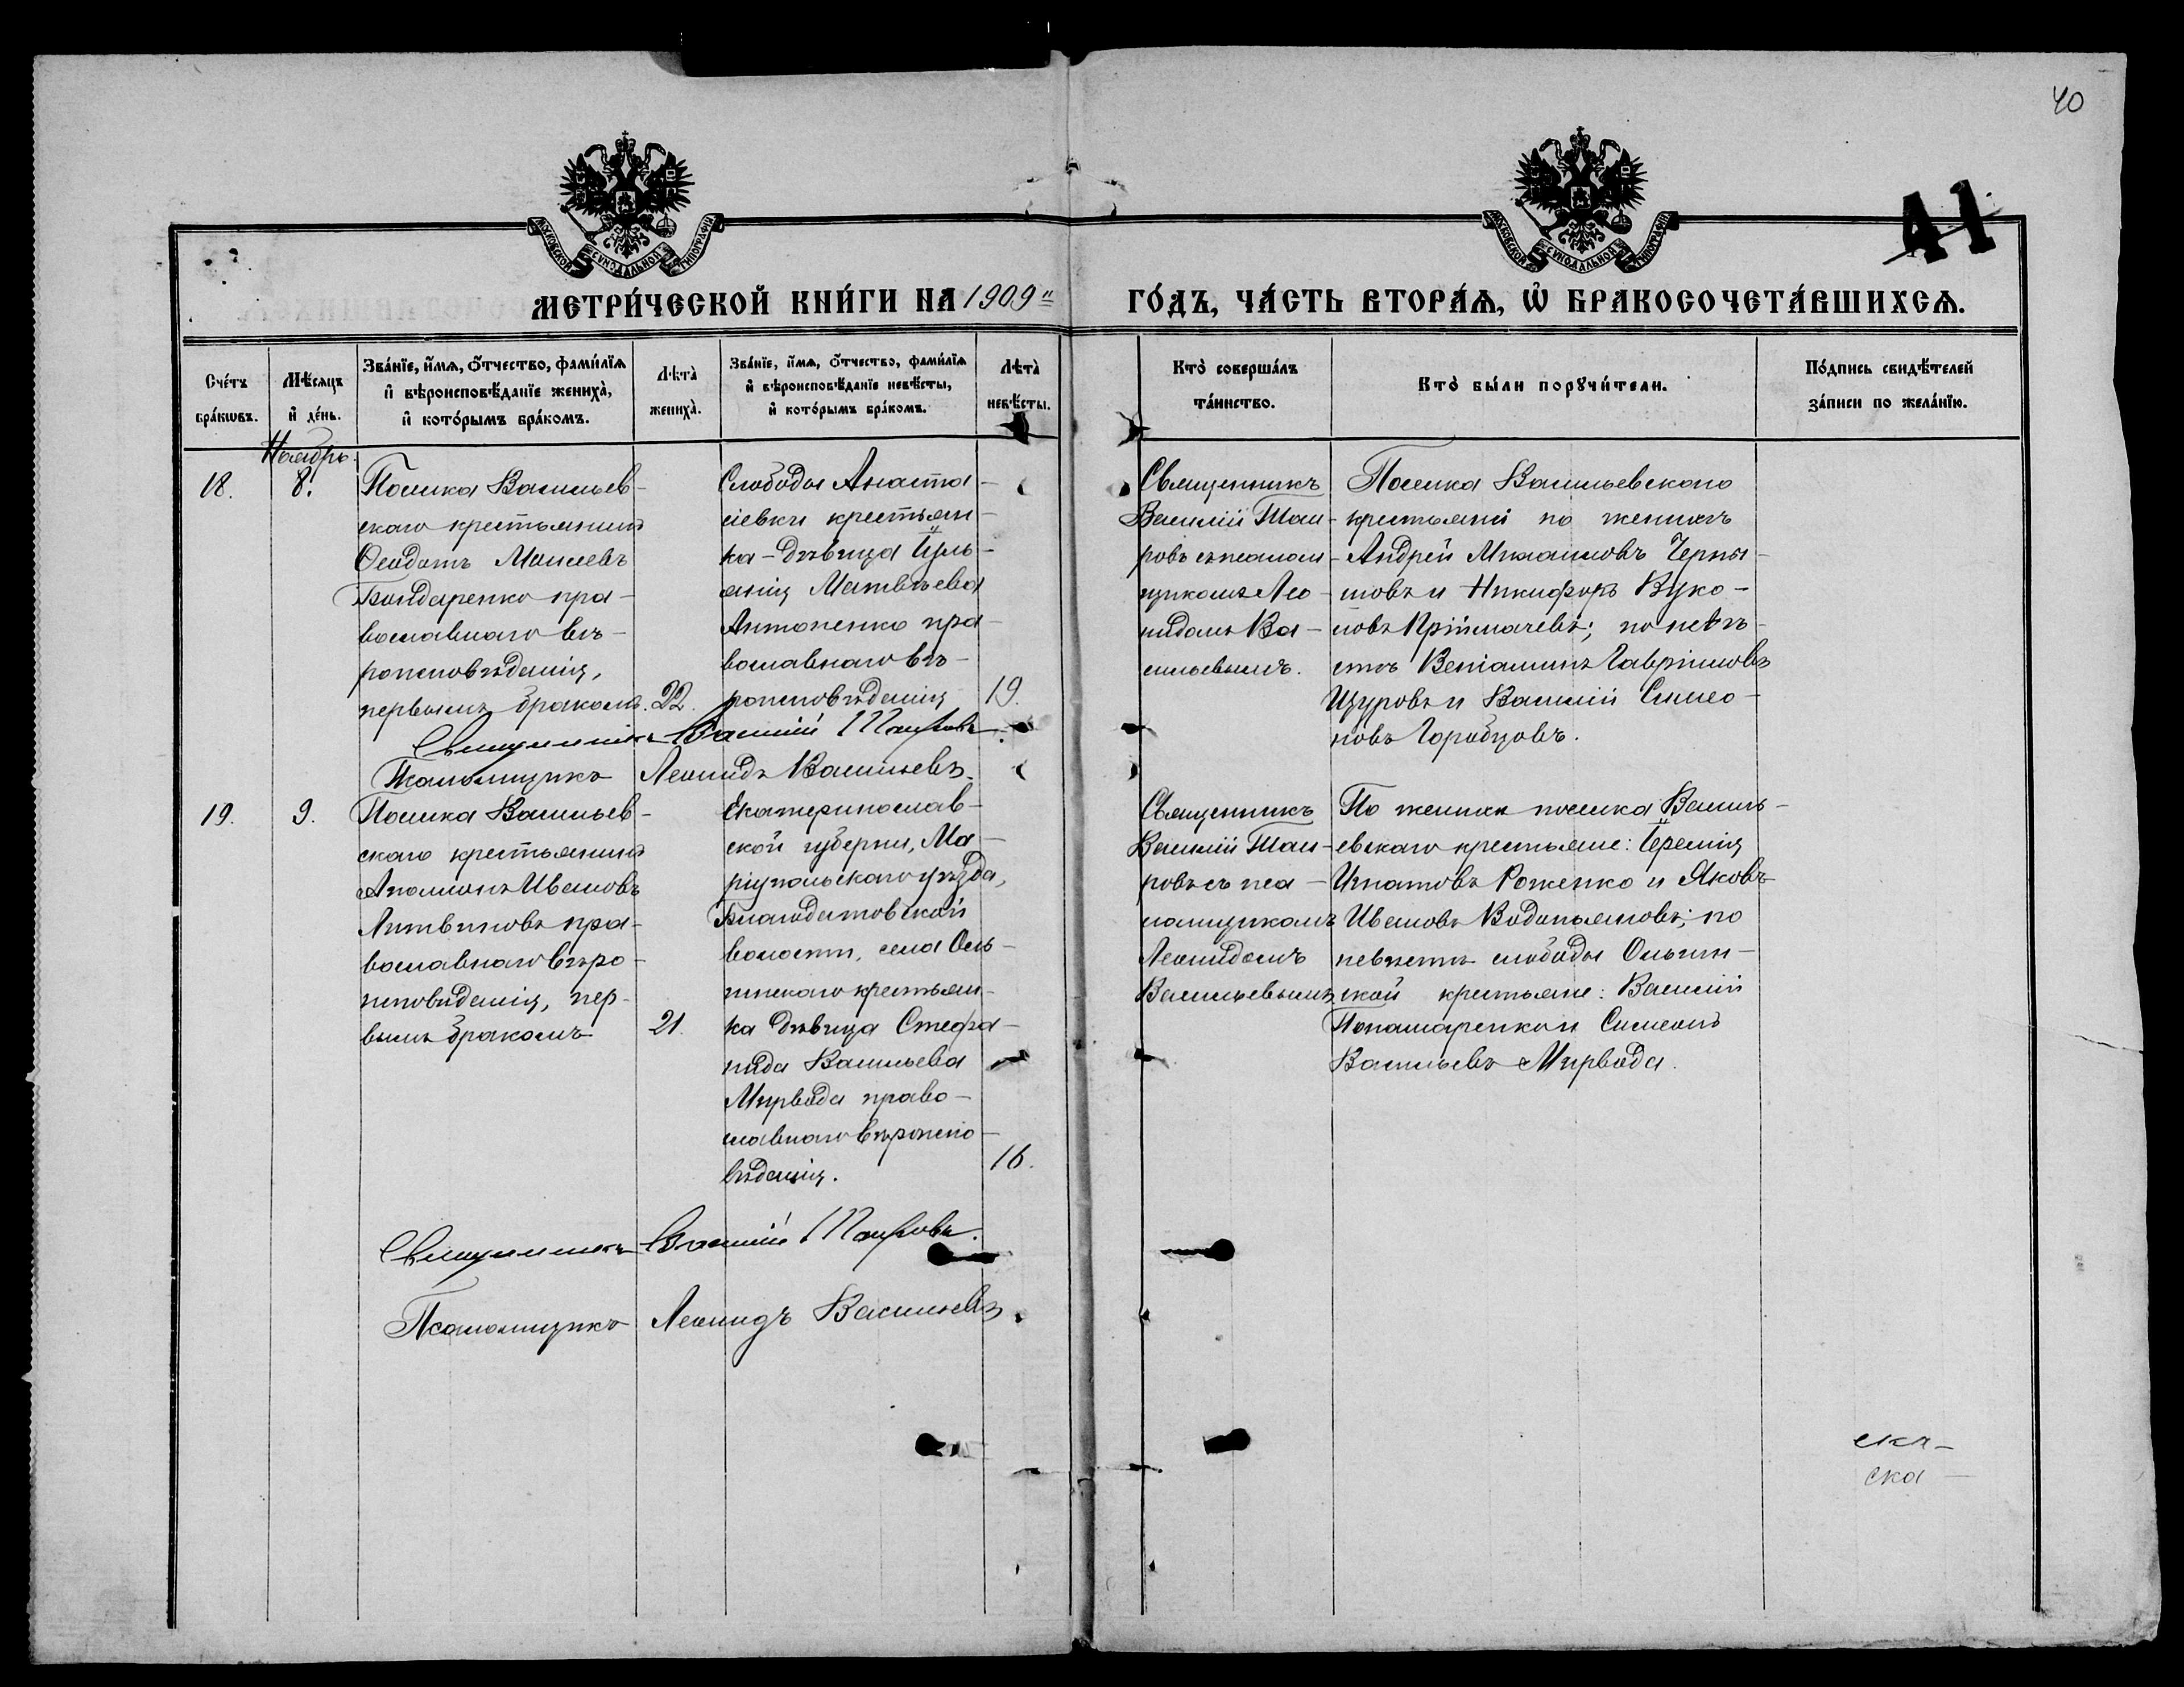 40
41
МОСКОВСКОЙ СѴНОДАЛЬНОЙ ТИПОГРАФІИ
МОСКОВСКОЙ СѴНОДАЛЬНОЙ ТИПОГРАФІИ
МЕТРИ́ЧЕСКОЙ КНИ́ГИ НА 1909й
ГО́ДЪ, ЧА́СТЬ ВТОРА́Ѧ, Ѡ҆ БРАКОСОЧЕТА́ВШИХСѦ.
Сче́тъ бра́кѡвъ.
Мѣ́сяцъ и҆ де́нь.
Зва́нїе, и҆́мѧ, ѻ҆́тчество, фами́лїѧ
и҆ вѣроисповѣ́данїе жениха̀,
и҆ кото́рымъ бра́комъ.
Лѣта̀ жениха̀.
Зва́нїе, и҆́мѧ, ѻ҆́тчество, фами́лїѧ
и҆ вѣроисповѣ́данїе невѣ́сты,
и҆ кото́рымъ бра́комъ.
Лѣта̀ невѣ́сты.
Кто̀ соверша́лъ
та́инство.
Кто̀ бы́ли порꙋчи́тели.
По́дпись свидѣ́телей
за́писи по жела́нїю.
Ноябрь.
18.
8.
Поселка Васильев-
скаго крестьянинъ
Ѳеодотъ Моисеевъ
Бондаренко пра-
вославнаго вѣ-
роисповѣданія,
первымъ бракомъ.
22.
Слободы Анаста-
сіевки крестьян-
ка-дѣвица Іуль-
янія Матвѣева
Антоненко пра-
вославнаго вѣ-
роисповѣданія
19.
Священникъ
Василій
ровъ съ псалом-
щикомъ Лео-
нидомъ Ва-
сильевымъ.
Поселка Васильевскаго
крестьяне по женихѣ
Андрей Михаиловъ Черны-
шовъ и Никифоръ Вуко-
ловъ Пріймачевъ; по невѣ-
стѣ Веніаминъ Гавріиловъ
Щуровъ и Василій Симео-
новъ Горобцовъ.
Священникъ Василій
Псаломщикъ Леонидъ Васильевъ.
19.
9.
Поселка Васильев-
скаго крестьянинъ
Аполлонъ Ивановъ
Литвиновъ пра-
вославнаго вѣро-
исповѣданія, пер-
вымъ бракомъ
21.
Екатеринослав-
ской губерніи, Ма-
ріупольскаго уѣзда,
Благодатовской
волости, села Оль-
гинскаго крестьян-
ка дѣвица Стефа-
нида Васильева
Мирвода право-
славнаго вѣроиспо-
вѣданія.
16.
Священникъ
Василій
ровъ съ пса-
ломщикомъ
Леонидомъ
Васильевымъ
По женихѣ поселка Василь-
евскаго крестьяне: Іеремія
Игнатовъ Роженко и Яковъ
Ивановъ Водопьяновъ; по
невѣстѣ слободы Ольгин-
ской крестьяне: Василій
Понамаренко и Симеонъ
Васильевъ Мирвода.
Священникъ Василій
Псаломщикъ Леонидъ Васильевъ
ска-